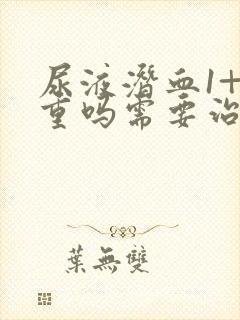 尿液潜血1+
重吗需要治
葉無雙